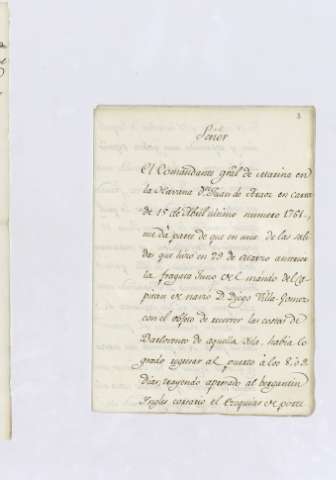 3
Señor
El Comandante gral de Marina en
la Havana Dn Juan de Araoz en carta
de 15 de Abril ultimo numero 1761
me dá parte de que en una de las sali
das que hizo en 29 de Marzo anterior
la fragata Juno del mándo del Ca
pitan de navio D. Diego Villa-Gomez
con el objeto de recorrer las costas de
Barlovento de aquella Isla, había lo
grado regresar al puerto á los 8. ó 9.
dias, trayendo apresado al bergantin
Ingles corsario el de porte